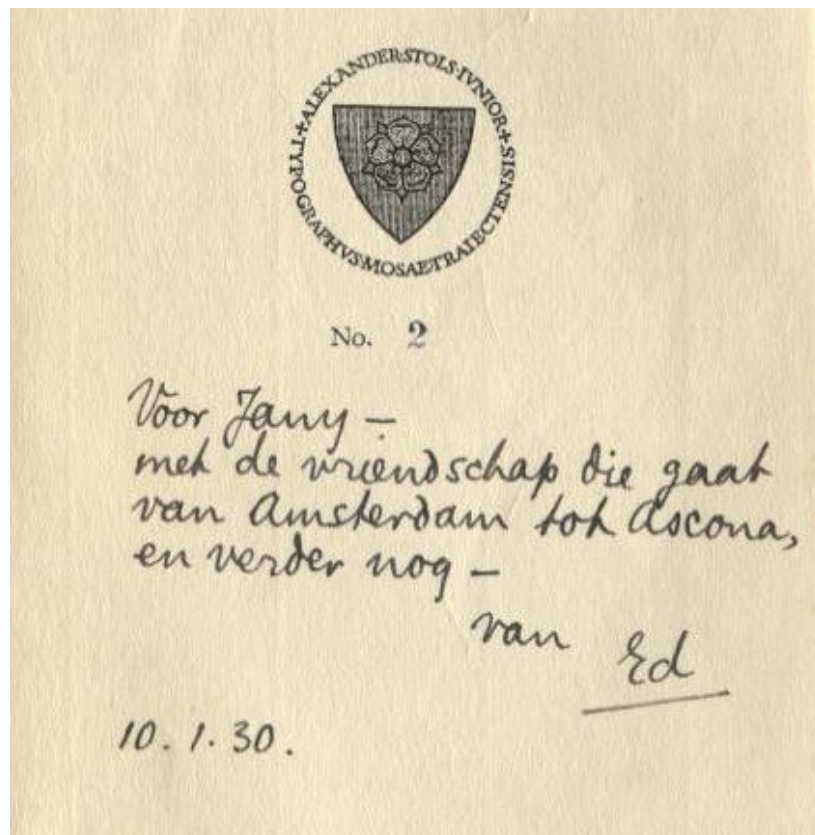 ALEXANDER·STOLS·IVNIOR + TYPOGRAPHVS·MOSAE·TRAIECTENSIS +
No. 2
Voor Jany —
met de vriendschap die gaat
van Amsterdam tot Ascona,
en verder nog —
van Ed
10.1.30.